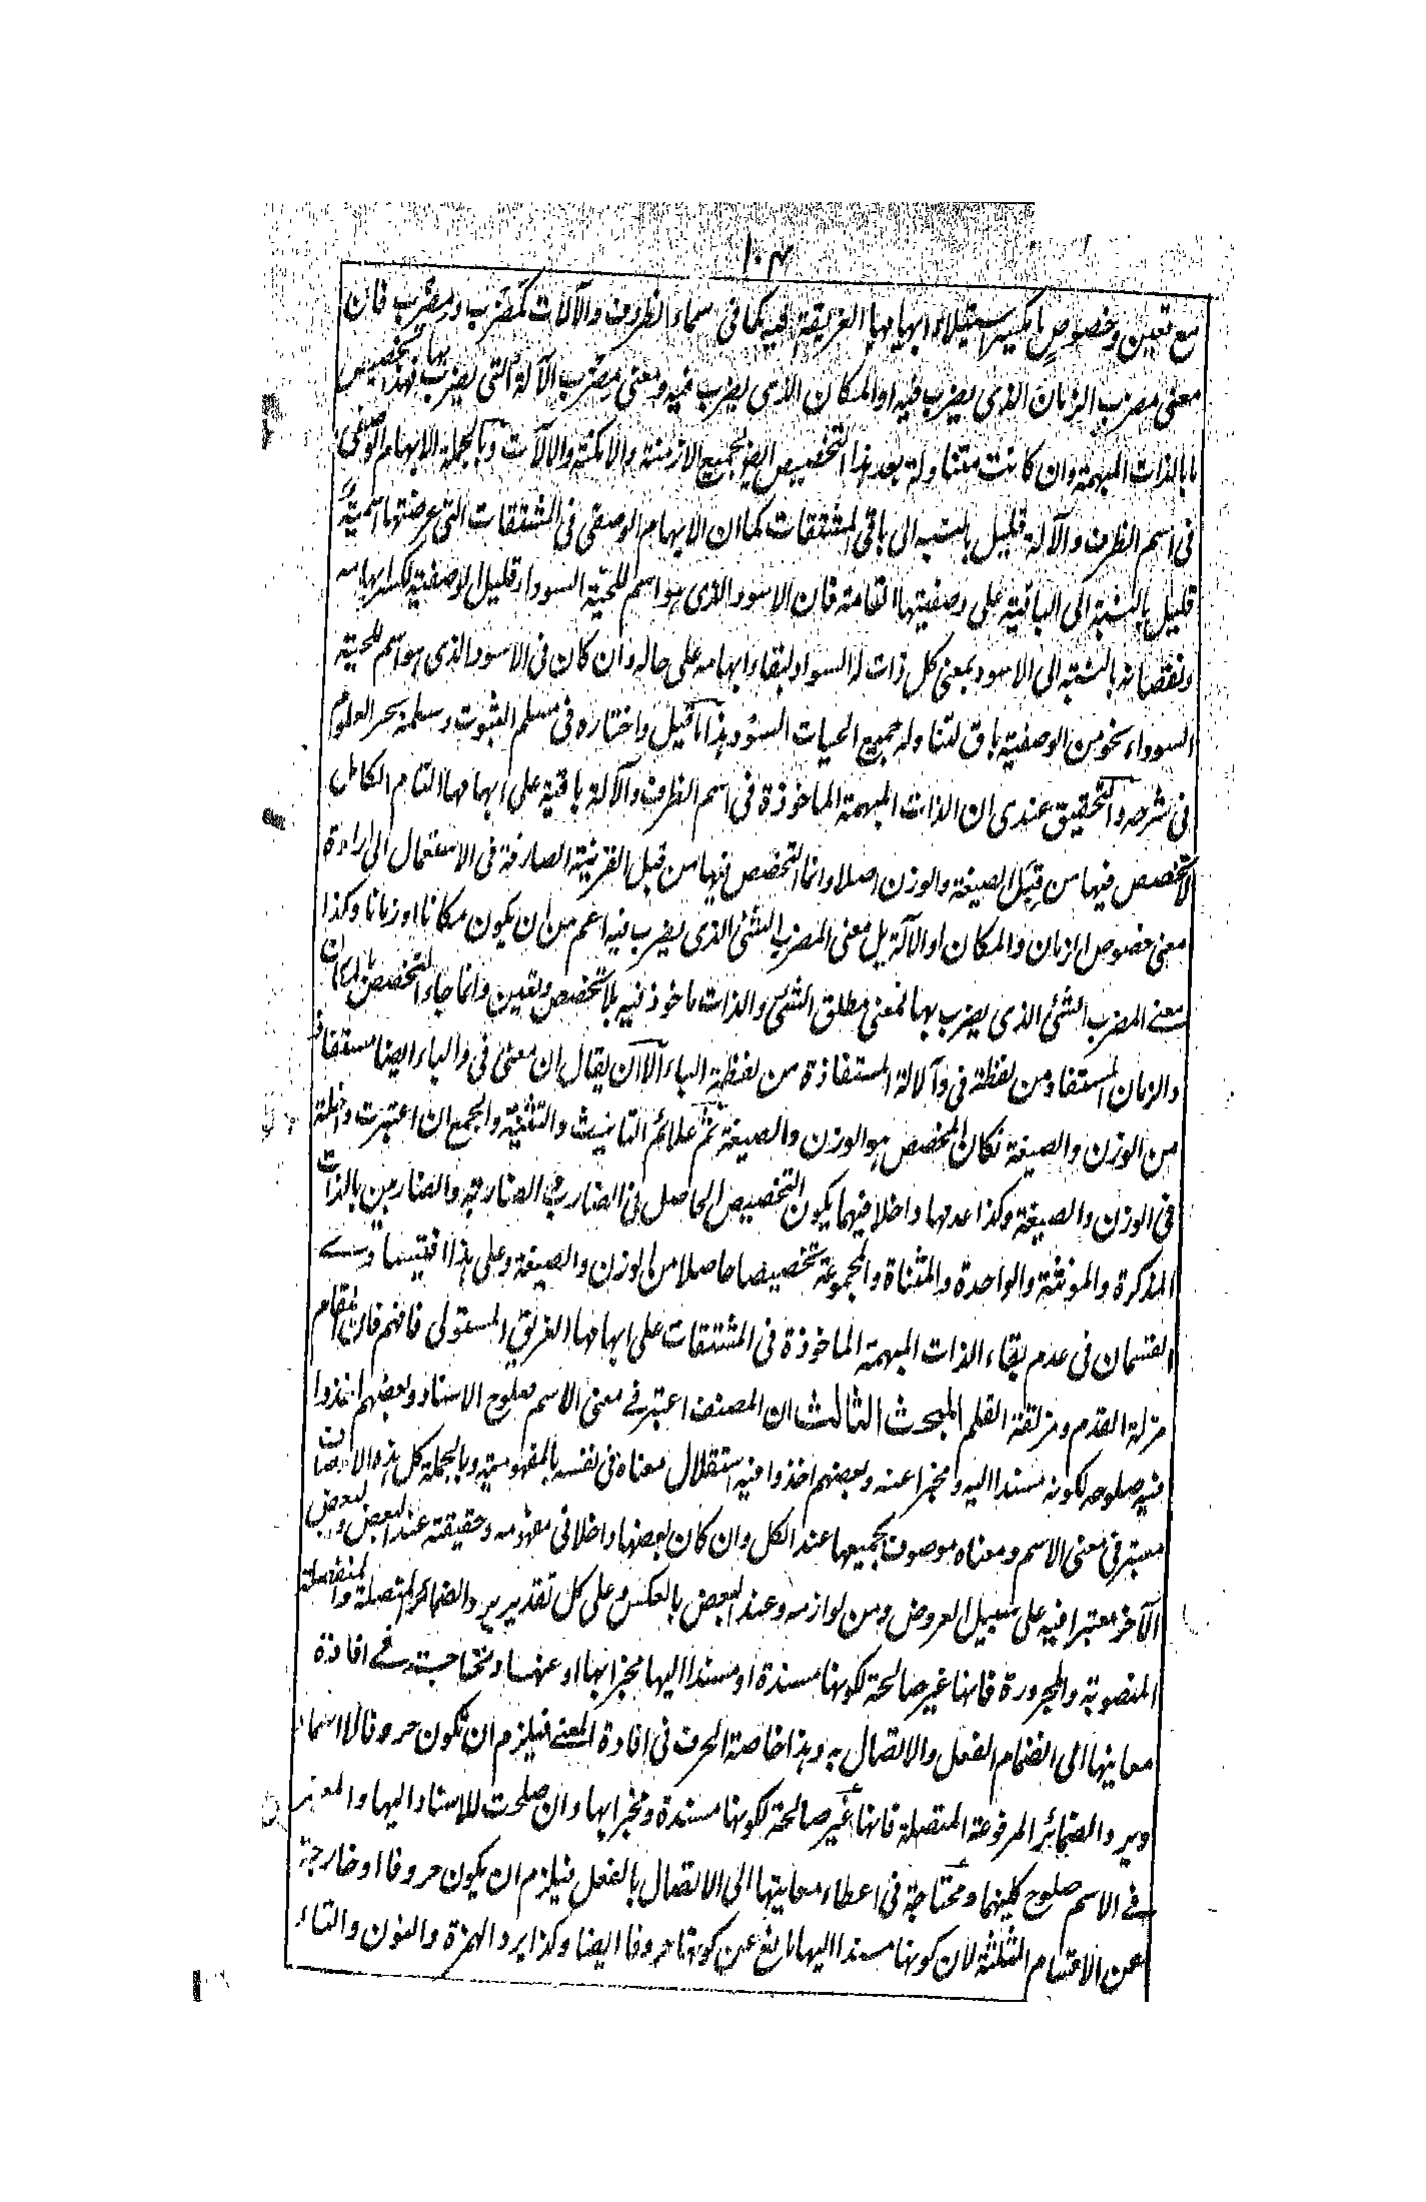 ١٠٣
مع تعين وخصوص ما يكسر استيلاء ابهامها العريقة فيه كما فى اسماء الظروف والآلات كمَضرَب ومِضرَب فان
معنى مضرب الزمان الذى يضرب فيه او المكان الذى يضرب فيه ومعنى مِضرَب الآلة التى يضرب بها فهذا تخصيص
ما بالذات المبهمة وان كانت متناولة بعد هذا التخصيص ايضا لجميع الازمنة والامكنة والآلات وبالجملة الابهام الوصفى
فى اسم الظرف والآلة قليل بالنسبة الى باقى المشتقات كما ان الابهام الوصفى فى المشتقات التى عرضتها اسمية
قليل بالنسبة الى الباقية على وصفيتها التامة فان الاسود الذى هو اسم للحية السوداء قليل الوصفية لكسر ابهامه
ونقصانه بالنسبة الى الاسود بمعنى كل ذات له السواد لبقاء ابهامه على حاله وان كان فى الاسود الذى هو اسم للحية
السوداء نحو من الوصفية باق لتناوله جميع الحيات السود هذا ما قيل واختاره فى مسلم الثبوت وسلمه بحر العلوم
فى شرحه والتحقيق عندى ان الذات المبهمة الماخوذة فى اسم الظرف والآلة باقية على ابهامها التام الكامل
لا تخصص فيها من قبل الصيغة والوزن اصلا وانما التخصص فيها من قبل القرينة الصارفة فى الاستعمال الى ارادة
معنى خصوص الزمان والمكان او الآلة بل معنى المضرب الشئ الذى يضرب فيه اعم من ان يكون مكانا او زمانا وكذا
معنى المضرب الشئ الذى يضرب بها فمعنى مطلق الشئ والذات ماخوذ فيه بلا تخصص وتعين وانما جاء التخصص بالمكان
والزمان المستفاد من لفظة فى والآلة المستفادة من لفظة الباء الا ان يقال ان معنى فى والباء ايضا مستفاد
من الوزن والصيغة فكان المخصص هو الوزن والصيغة ثم علائم التانيث والتثنية والجمع ان اعتبرت داخلة
فى الوزن والصيغة وكذا عدمها داخلا فيهما يكون التخصيص الحاصل فى الضارب والضاربة والضاربين بالذات
المذكرة والمونثة والواحدة والمثناة والمجموعة تخصيصا حاصلا من الوزن والصيغة وعلى هذا
القسمان فى عدم بقاء الذات المبهمة الماخوذة فى المشتقات على ابهامها العريق المستولى فافهم فان المقام
مزلة القدم ومزلقة القلم المبحث الثالث ان المصنف اعتبر فى معنى الاسم صلوح الاسناد وبعضهم اخذوا
فيه صلوحه لكونه مسندا اليه ومخبرا عنه وبعضهم اخذوا فيه استقلال معناه فى نفسه بالمفهومية وبالجملة كل هذه الاوصاف
معتبر فى معنى الاسم ومعناه موصوف بجميعها عند الكل وان كان بعضها داخلا فى مفهومه وحقيقته عند البعض والبعض
الآخر معتبرا فيه على سبيل العروض ومن لوازمه وعند البعض بالعكس وعلى كل تقدير يرد الضمائر المتصلة والمنفصلة
المنصوبة والمجرورة فانها غير صالحة لكونها مسندة او مسندا اليها مخبرا بها او عنها ومحتاجة فى افادة
معانيها الى انضمام الفعل والاتصال به وهذا خاصة الحرف فى افادة المعنى فيلزم ان تكون حروفا لا اسماء
ويرد الضمائر المرفوعة المتصلة فانها غير صالحة لكونها مسندة ومخبرا بها وان صلحت للاسناد اليها والمعتبر
فى الاسم صلوح كليهما ومحتاجة فى اعطاء معانيها الى الاتصال بالفعل فيلزم ان يكون حروفا او خارجة
عن الاقسام الثلثة لان كونها مسندا اليها مانع عن كونها حروفا ايضا وكذا يرد الهمزة والنون والتاء